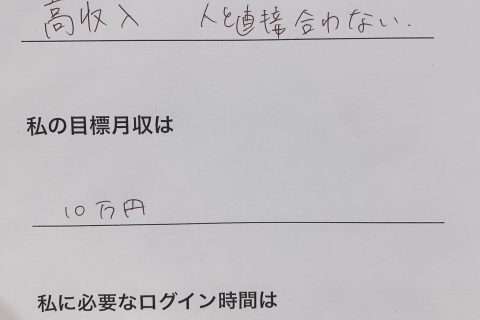 高収入　人と直接合わない.
私の目標月収は
10万円
私に必要なログイン時間は